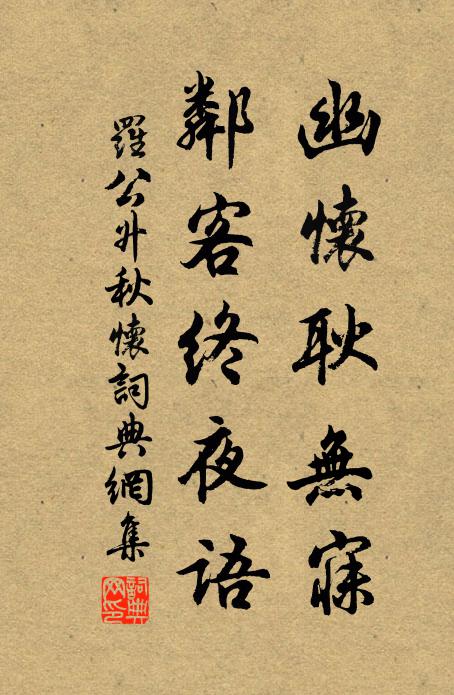 幽懷耿無寐
鄰客終夜語
羅公升秋懷詞典網集
詞典
网印